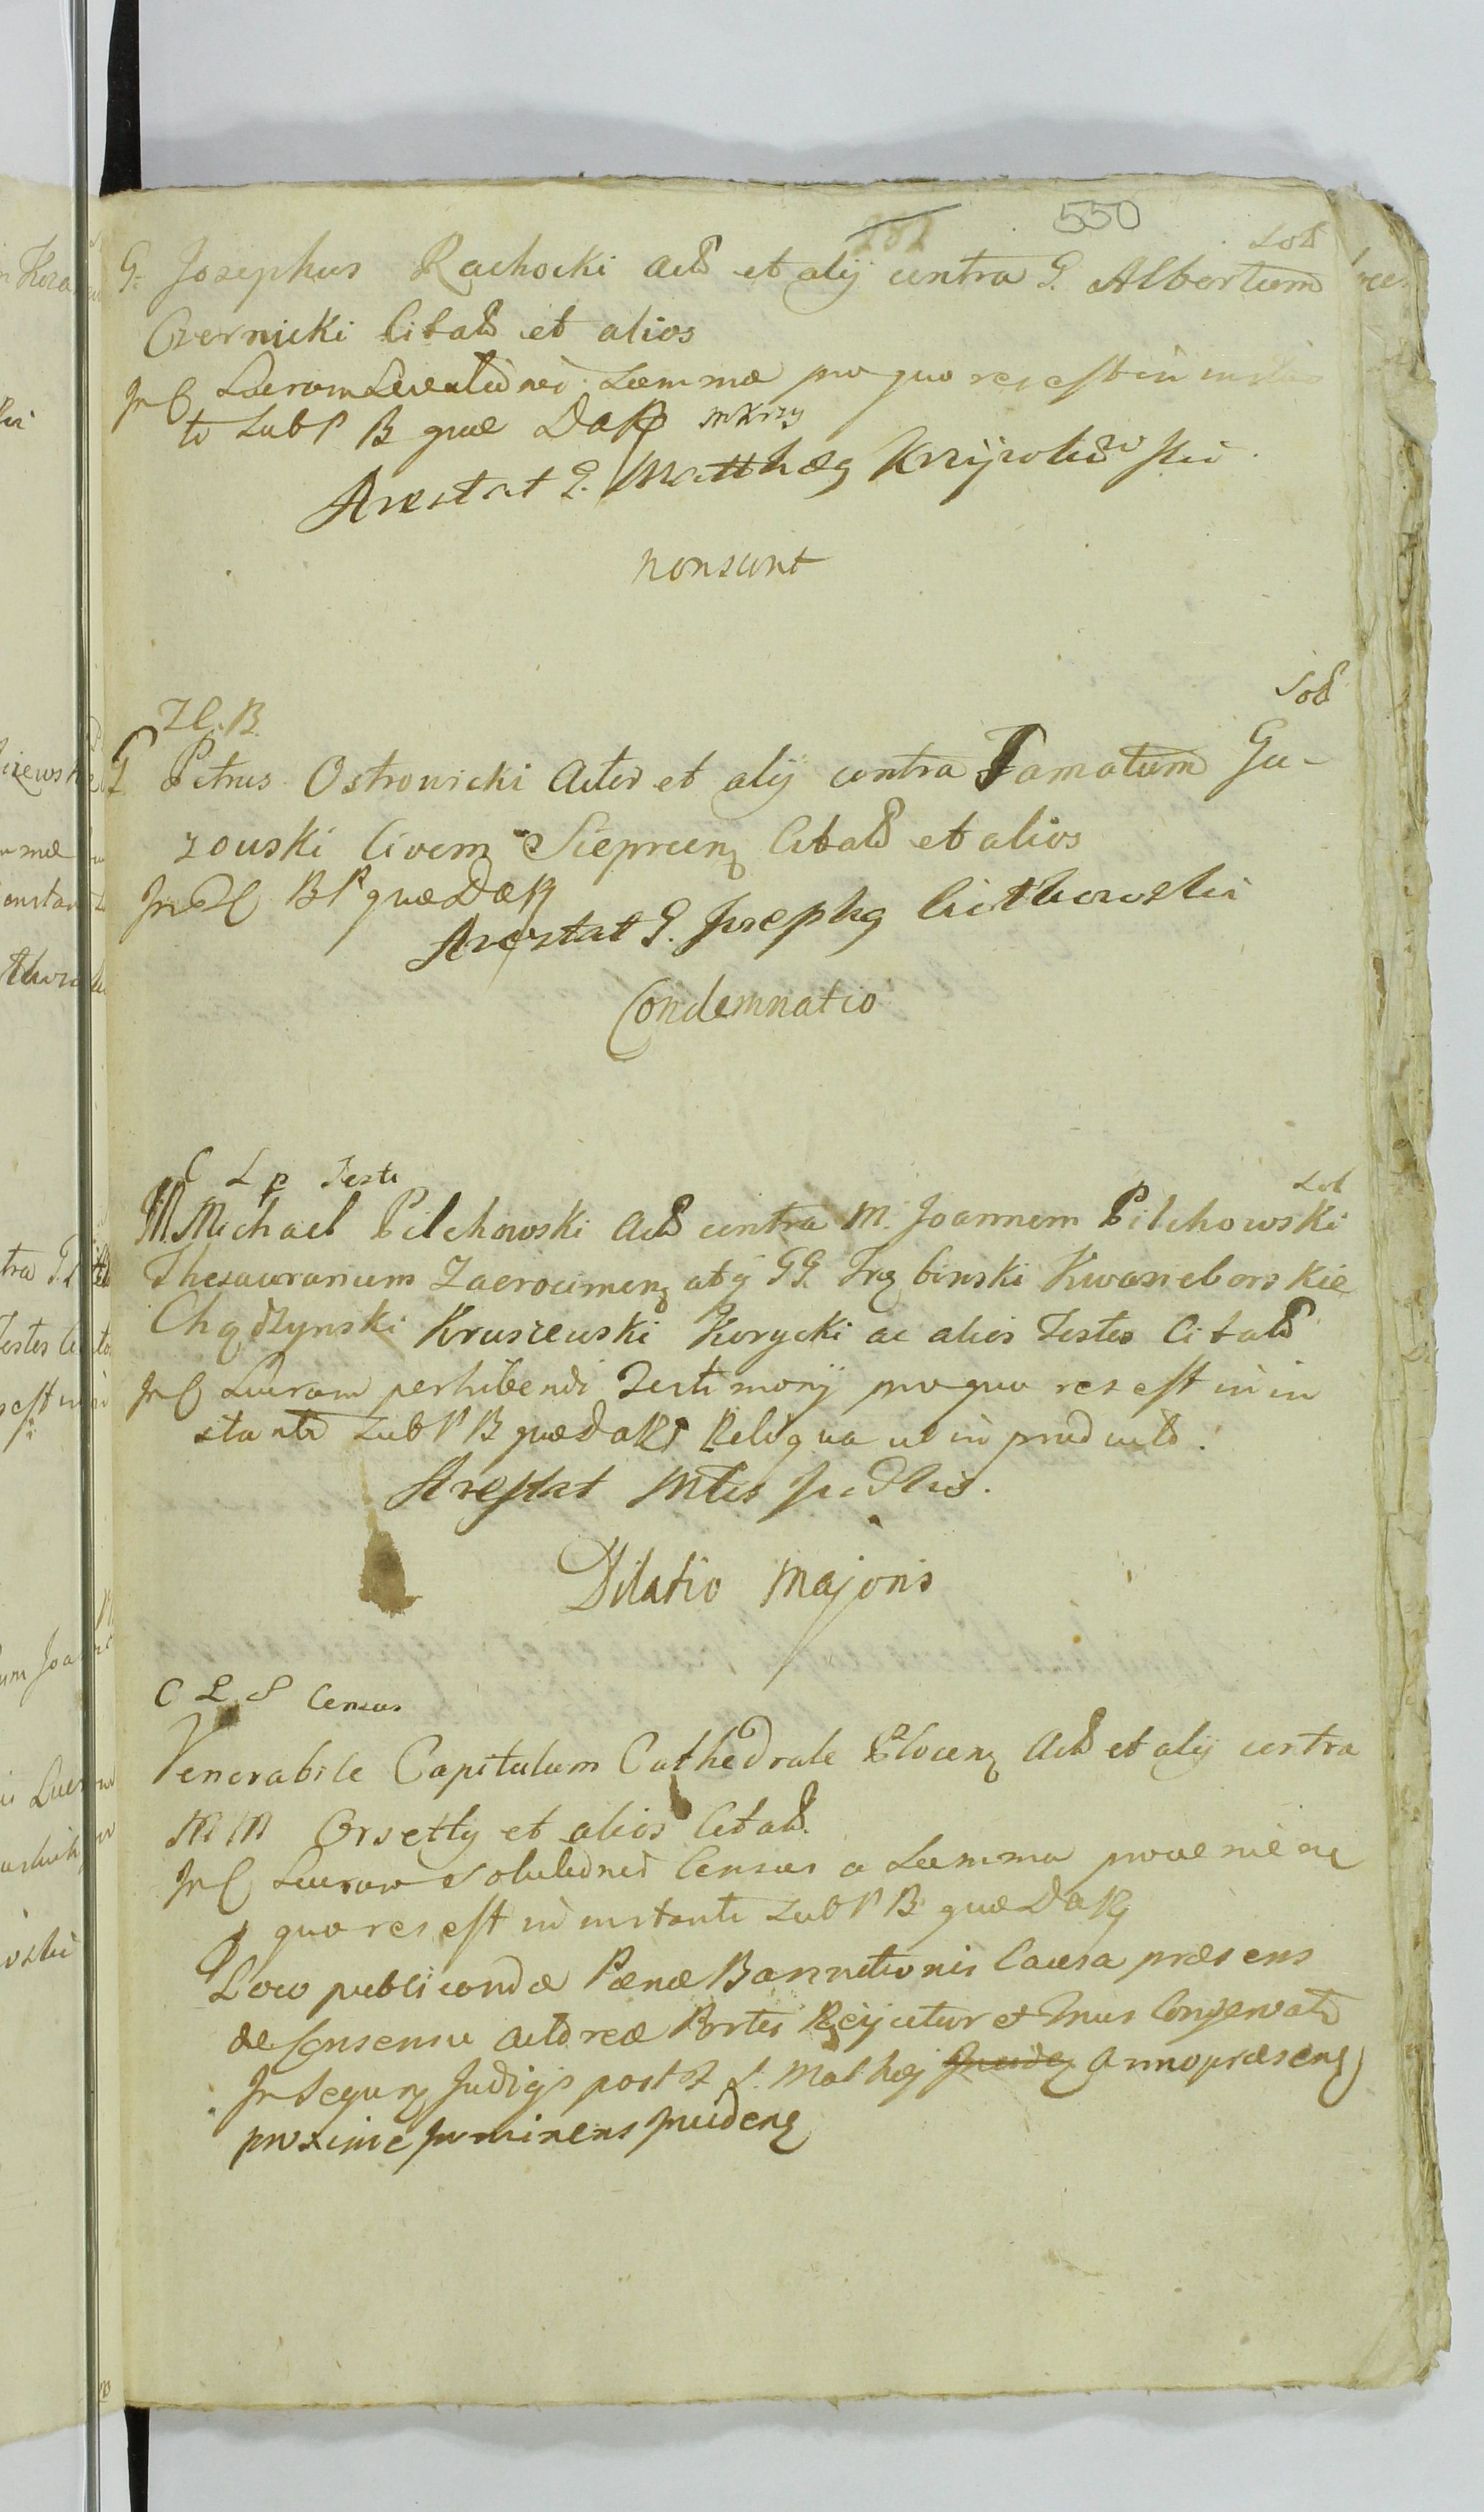 550
Sol
G. Josephus Rachocki Act et alij contra G. Albertum
Czernicki Citat et alios
In C Lucrum Summæ pro quo res est in instan
ti sub P B quæ DaR mKrzy
Arestat G. Matthæg Krzywkowski
non sunt
Sol
Z C. B.
G Petrus Ostrowicki Actor et alij contra Famatum Ga-
zouski Civem Sieprcen Citat et alios
In C B P quæ DaR
Arestat G. Joseph9 Cicthowski
Condemnatio
C L p Testi
Sol
M. Michael Pilchowski Act contra M. Joannem Pilchowski
Thesaurarium Zacrocimen atq GG. Trębinski Kwasieborskie
Chądzynski Kruszewski Korycki ac alios Testes Citat
In C Lucrum perhibendi Testimonij pro quo res est in in
stanti sub P B quæ DaR Reliqua ut in product.
Arestat Mtis Judtus.
Dilatio Majoris
C L S Census
Venerabile Capitulum Cathedrale Plocen Act et alij contra
MM Orsetty et alios Citat.
In C Lucrum Census a Summa provenien
p quo res est in instanti sub P B quæ DaR
Loco publicandæ Pænæ Bannitionis Causa præsens
de Consensu Actoreæ Partis Reijcitur et
In Sequen Judijs post F S. Mathæj Anno præsen
proxime Juriden